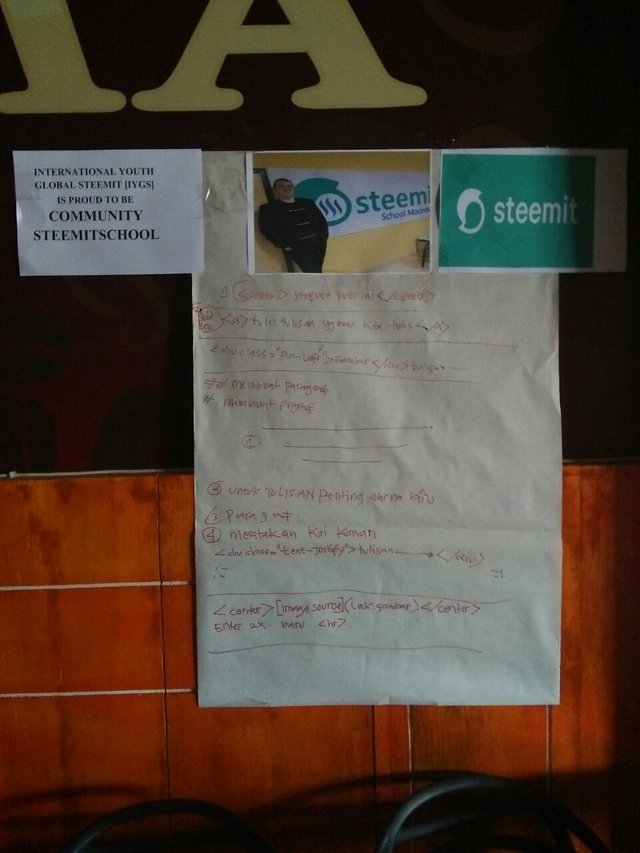 IA
INTERNATIONAL YOUTH
GLOBAL STEEMIT [IYGS]
IS PROUD TO BE
COMMUNITY
STEEMITSCHOOL
steemi
School Maced
steemit
1 <center> steemit </center>
Bold
tulis tulisan yg mau kita tulis
<div class="Pull-Left">Gambar</div>tulisan
## membuat paragraf
#. membuat
1
3 untuk TULISAN Penting warna
3 Paragraf.
4 meratakan Kiri Kanan
<div class="text-Justify">tulisan </div>
<center>[Image source](link gambar)</center>
Enter 2x baru <hr>.